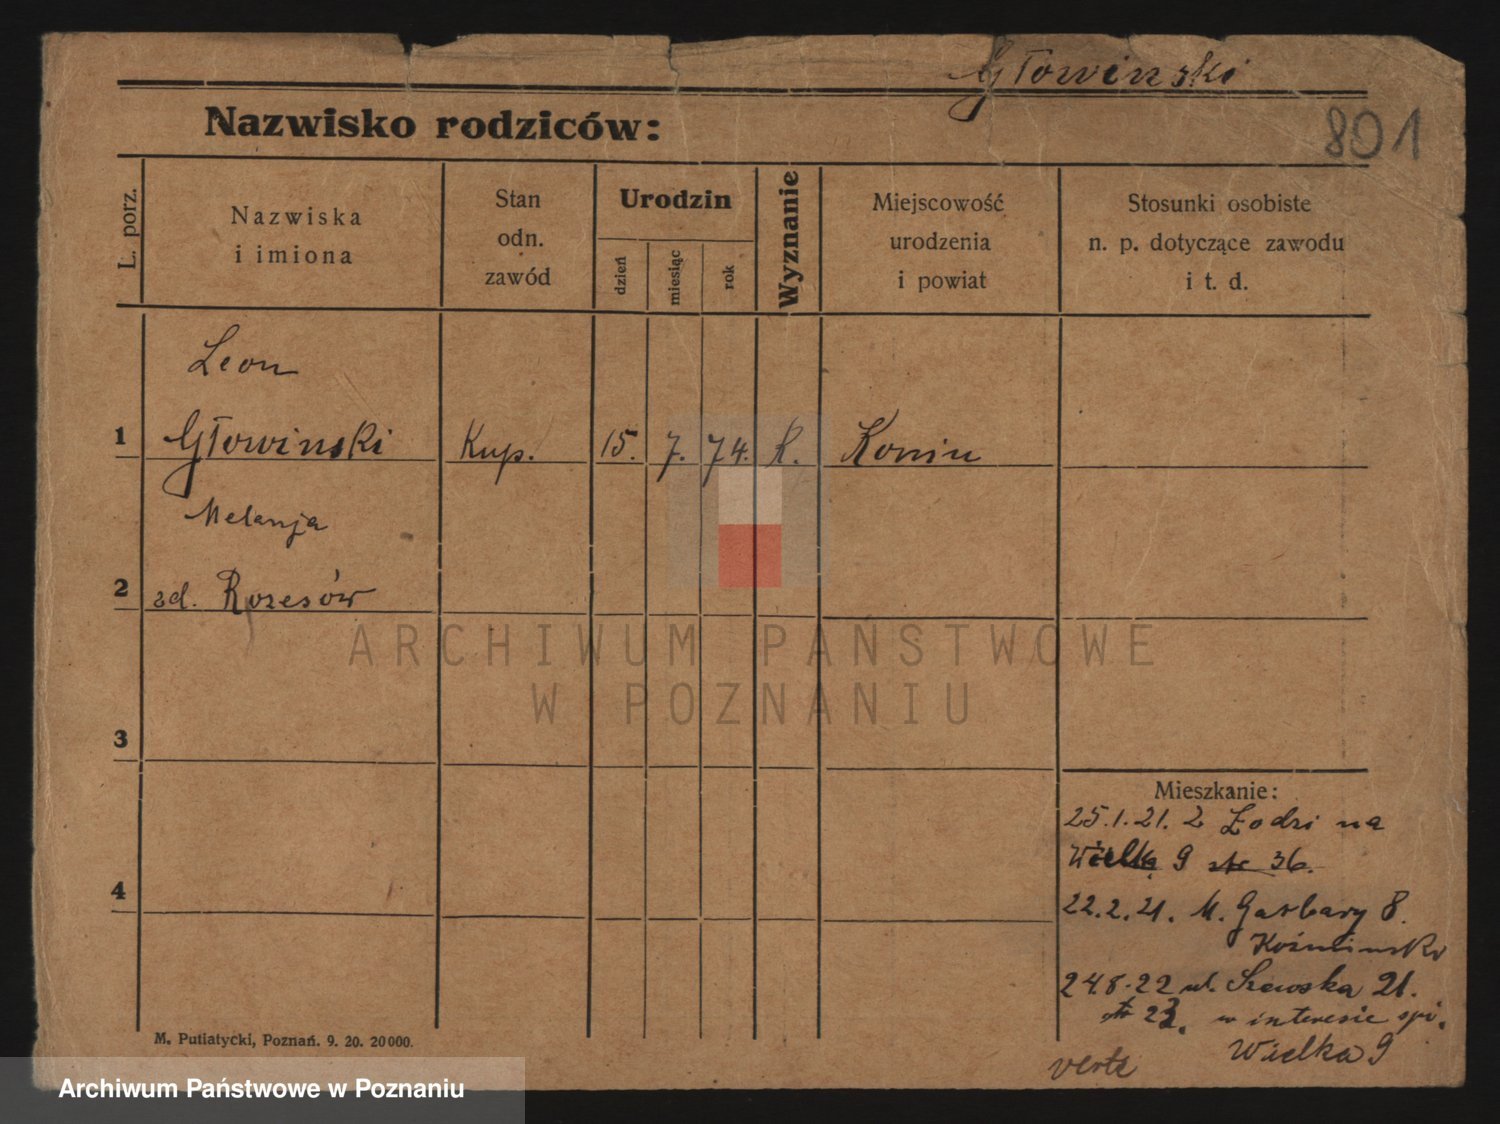 Głowinski
Nazwisko rodziców:
801
L. porz.
Nazwiska
i imiona
Stan
odn.
zawód
Urodzin
dzień
miesiąc
rok
Wyznanie
Miejscowość
urodzenia
i powiat
Stosunki osobiste
n. p. dotyczące zawodu
i t. d.
Leon
1 Głowinski Kup. 15. 7. 74. R. Konin
Melanja
2 zd. Rozesów
ARCHIWUM PAŃSTWOWE
W POZNANIU
3
4
Mieszkanie:
25.1.21. z Łodzi na
Wielką 9 36.
22.2.21. M. Garbary 8.
24.8.22 ul. Szewska 21.
23. w interesie spi.
Wielka 9
verte
M. Putiatycki, Poznań. 9. 20. 20000.
Archiwum Państwowe w Poznaniu